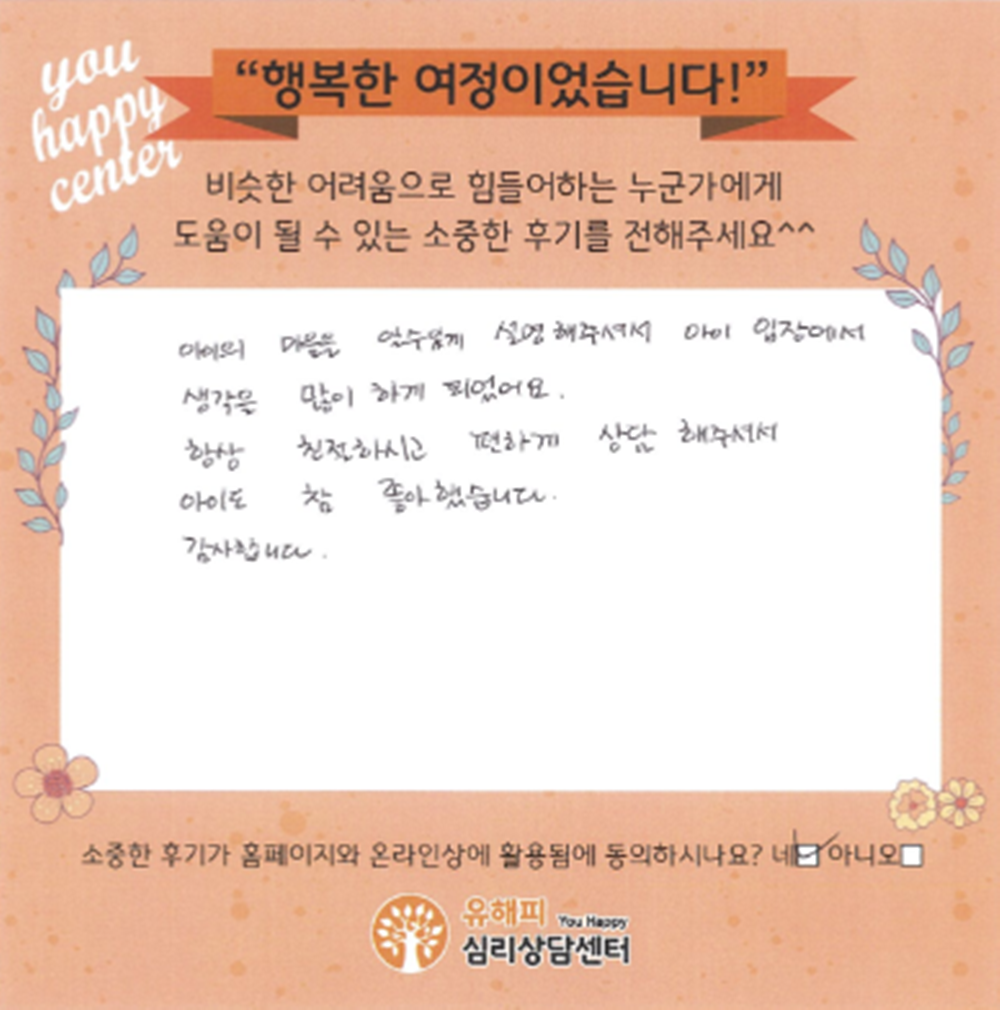 you
happy
center
“행복한 여정이었습니다!”
비슷한 어려움으로 힘들어하는 누군가에게
도움이 될 수 있는 소중한 후기를 전해주세요^^
아이의 마음을 알수있게 설명해주셔서 아이 입장에서
생각을 많이 하게 되었어요.
항상 친절하시고 편하게 상담 해주셔서
아이도 참 좋아했습니다.
감사합니다.
소중한 후기가 홈페이지와 온라인상에 활용됨에 동의하시나요? 네 아니오
유해피 You Happy
심리상담센터